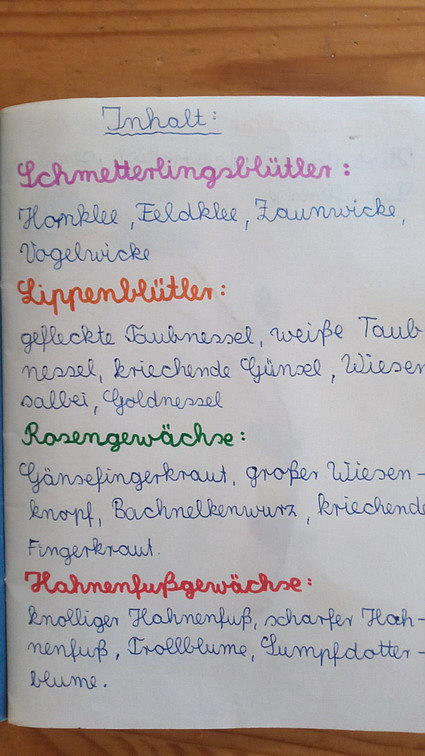 Inhalt:
Schmetterlingsblütler:
Hornklee, Feldklee, Zaunwicke,
Vogelwicke
Lippenblütler:
gefleckte Taubnessel, weiße Taub
nessel, kriechende Günsel, Wiesen
salbei, Goldnessel
Rosengewächse:
Gänsefingerkraut, großer Wiesen-
knopf, Bachnelkenwurz, kriechende
Fingerkraut.
Hahnenfußgewächse:
knolliger Hahnenfuß, scharfer Hah-
nenfuß, Trollblume, Sumpfdotter-
blume.